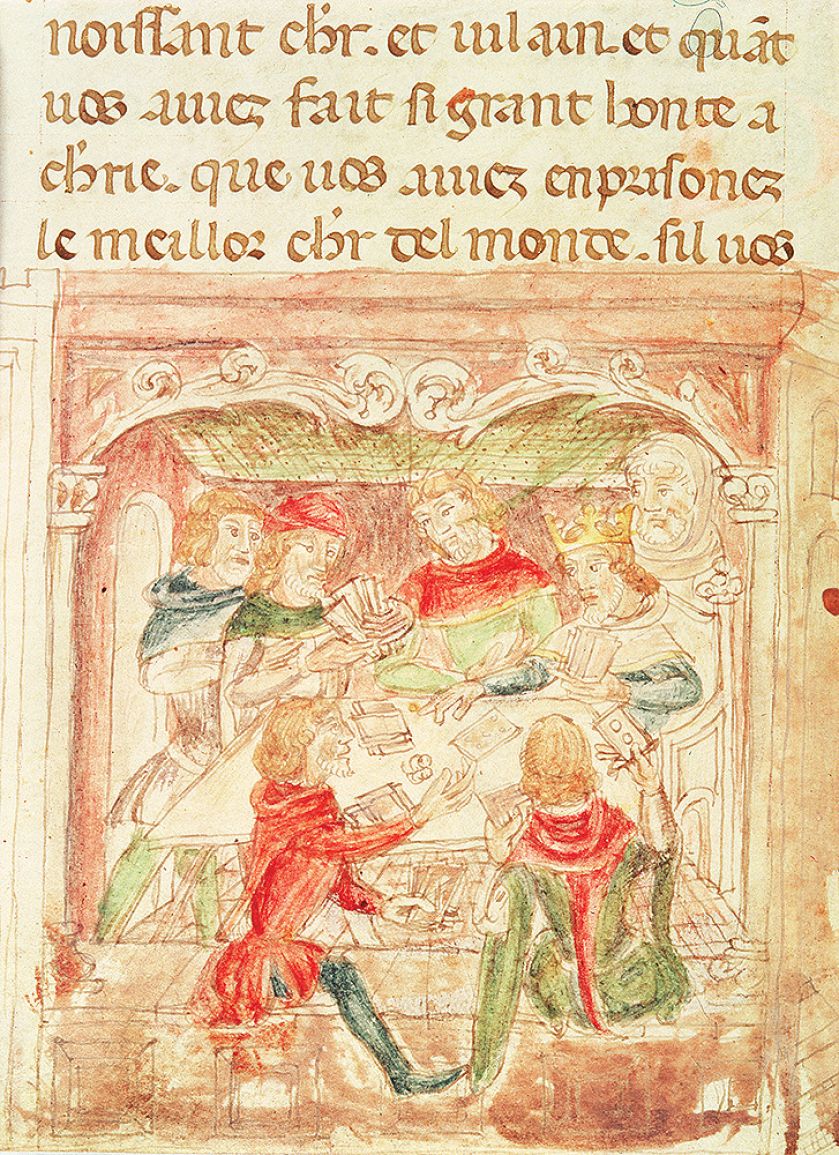 noissant chr̄. et uilain. et quāt
uos auiez fait si grant honte a
chr̄ie. que uos auiez enprisonez
le meillor chr̄ del monde. sil uos